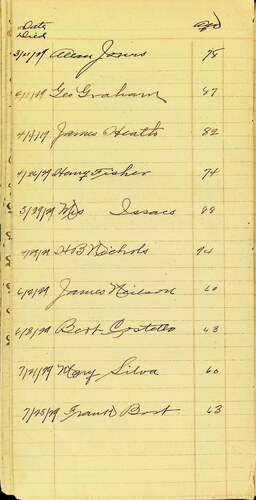 Date Died Age
3/21/29 Allan Jones 78
4/11/29 Geo Graham 87
4/14/29 James Heath 82
4/26/29 Henry Fisher 74
5/29/29 Mrs Issacs 88
H B Nichols 74
6/2/29 James Neilson 60
6/8/29 Bert Costello 63
7/21/29 Mary Silva 60
7/25/29 Frank Bost 63